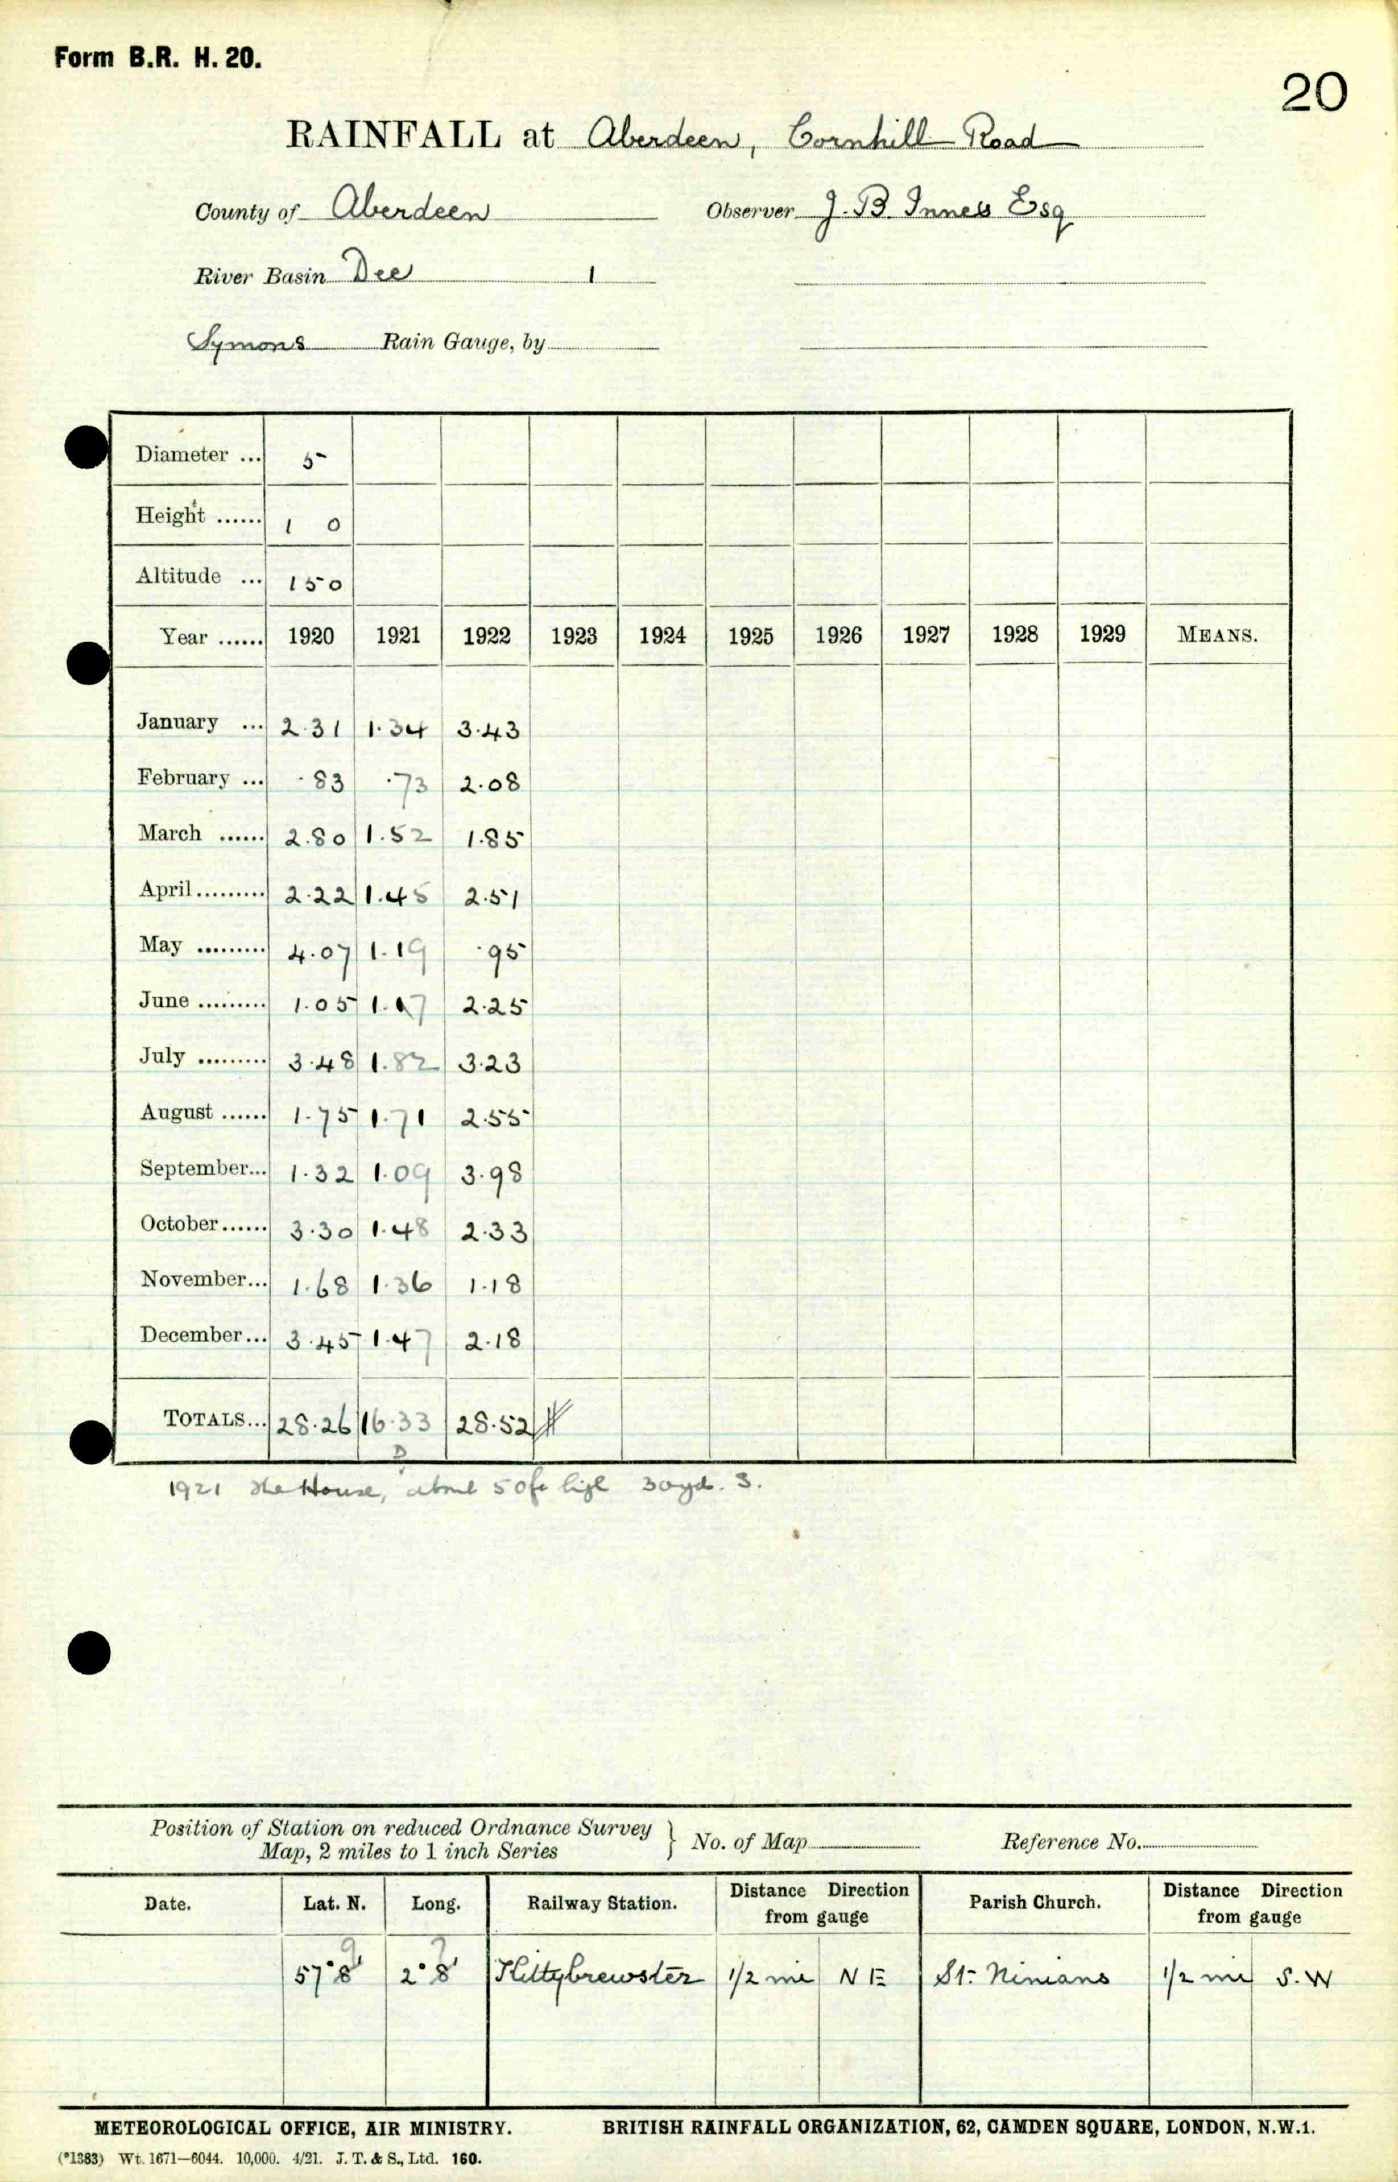 Form B.R. H. 20.
20
RAINFALL at Aberdeen, Cornhill Road
County of Aberdeen Observer J. B. Innes Esq
River Basin Dee 1
Symons Rain Gauge, by
Diameter ... 5
Height ...... 1 0
Altitude ... 150
Year ...... 1920 1921 1922 1923 1924 1925 1926 1927 1928 1929 MEANS.
January ... 2.31 1.34 3.43
February ... .83 .73 2.08
March ...... 2.80 1.52 1.85
April ......... 2.22 1.45 2.51
May ......... 4.07 1.19 .95
June ......... 1.05 1.17 2.25
July ......... 3.48 1.82 3.23
August ...... 1.75 1.71 2.55
September... 1.32 1.09 3.98
October ...... 3.30 1.48 2.33
November... 1.68 1.36 1.18
December ... 3.45 1.47 2.18
TOTALS... 28.26 16.33 28.52
D
1921 The House, about 50ft high 30yd. S.
Position of Station on reduced Ordnance Survey
Map, 2 miles to 1 inch Series } No. of Map Reference No.
Date. Lat. N. Long. Railway Station. Distance Direction from gauge Parish Church. Distance Direction from gauge
9 ?
57° 8' 2° 8' Kittybrewster 1/2 mi N E St. Ninians 1/2 mi S.W
METEOROLOGICAL OFFICE, AIR MINISTRY. BRITISH RAINFALL ORGANIZATION, 62, CAMDEN SQUARE, LONDON, N.W.1.
(*1383) Wt. 1671—6044. 10,000. 4/21. J. T. & S., Ltd. 160.